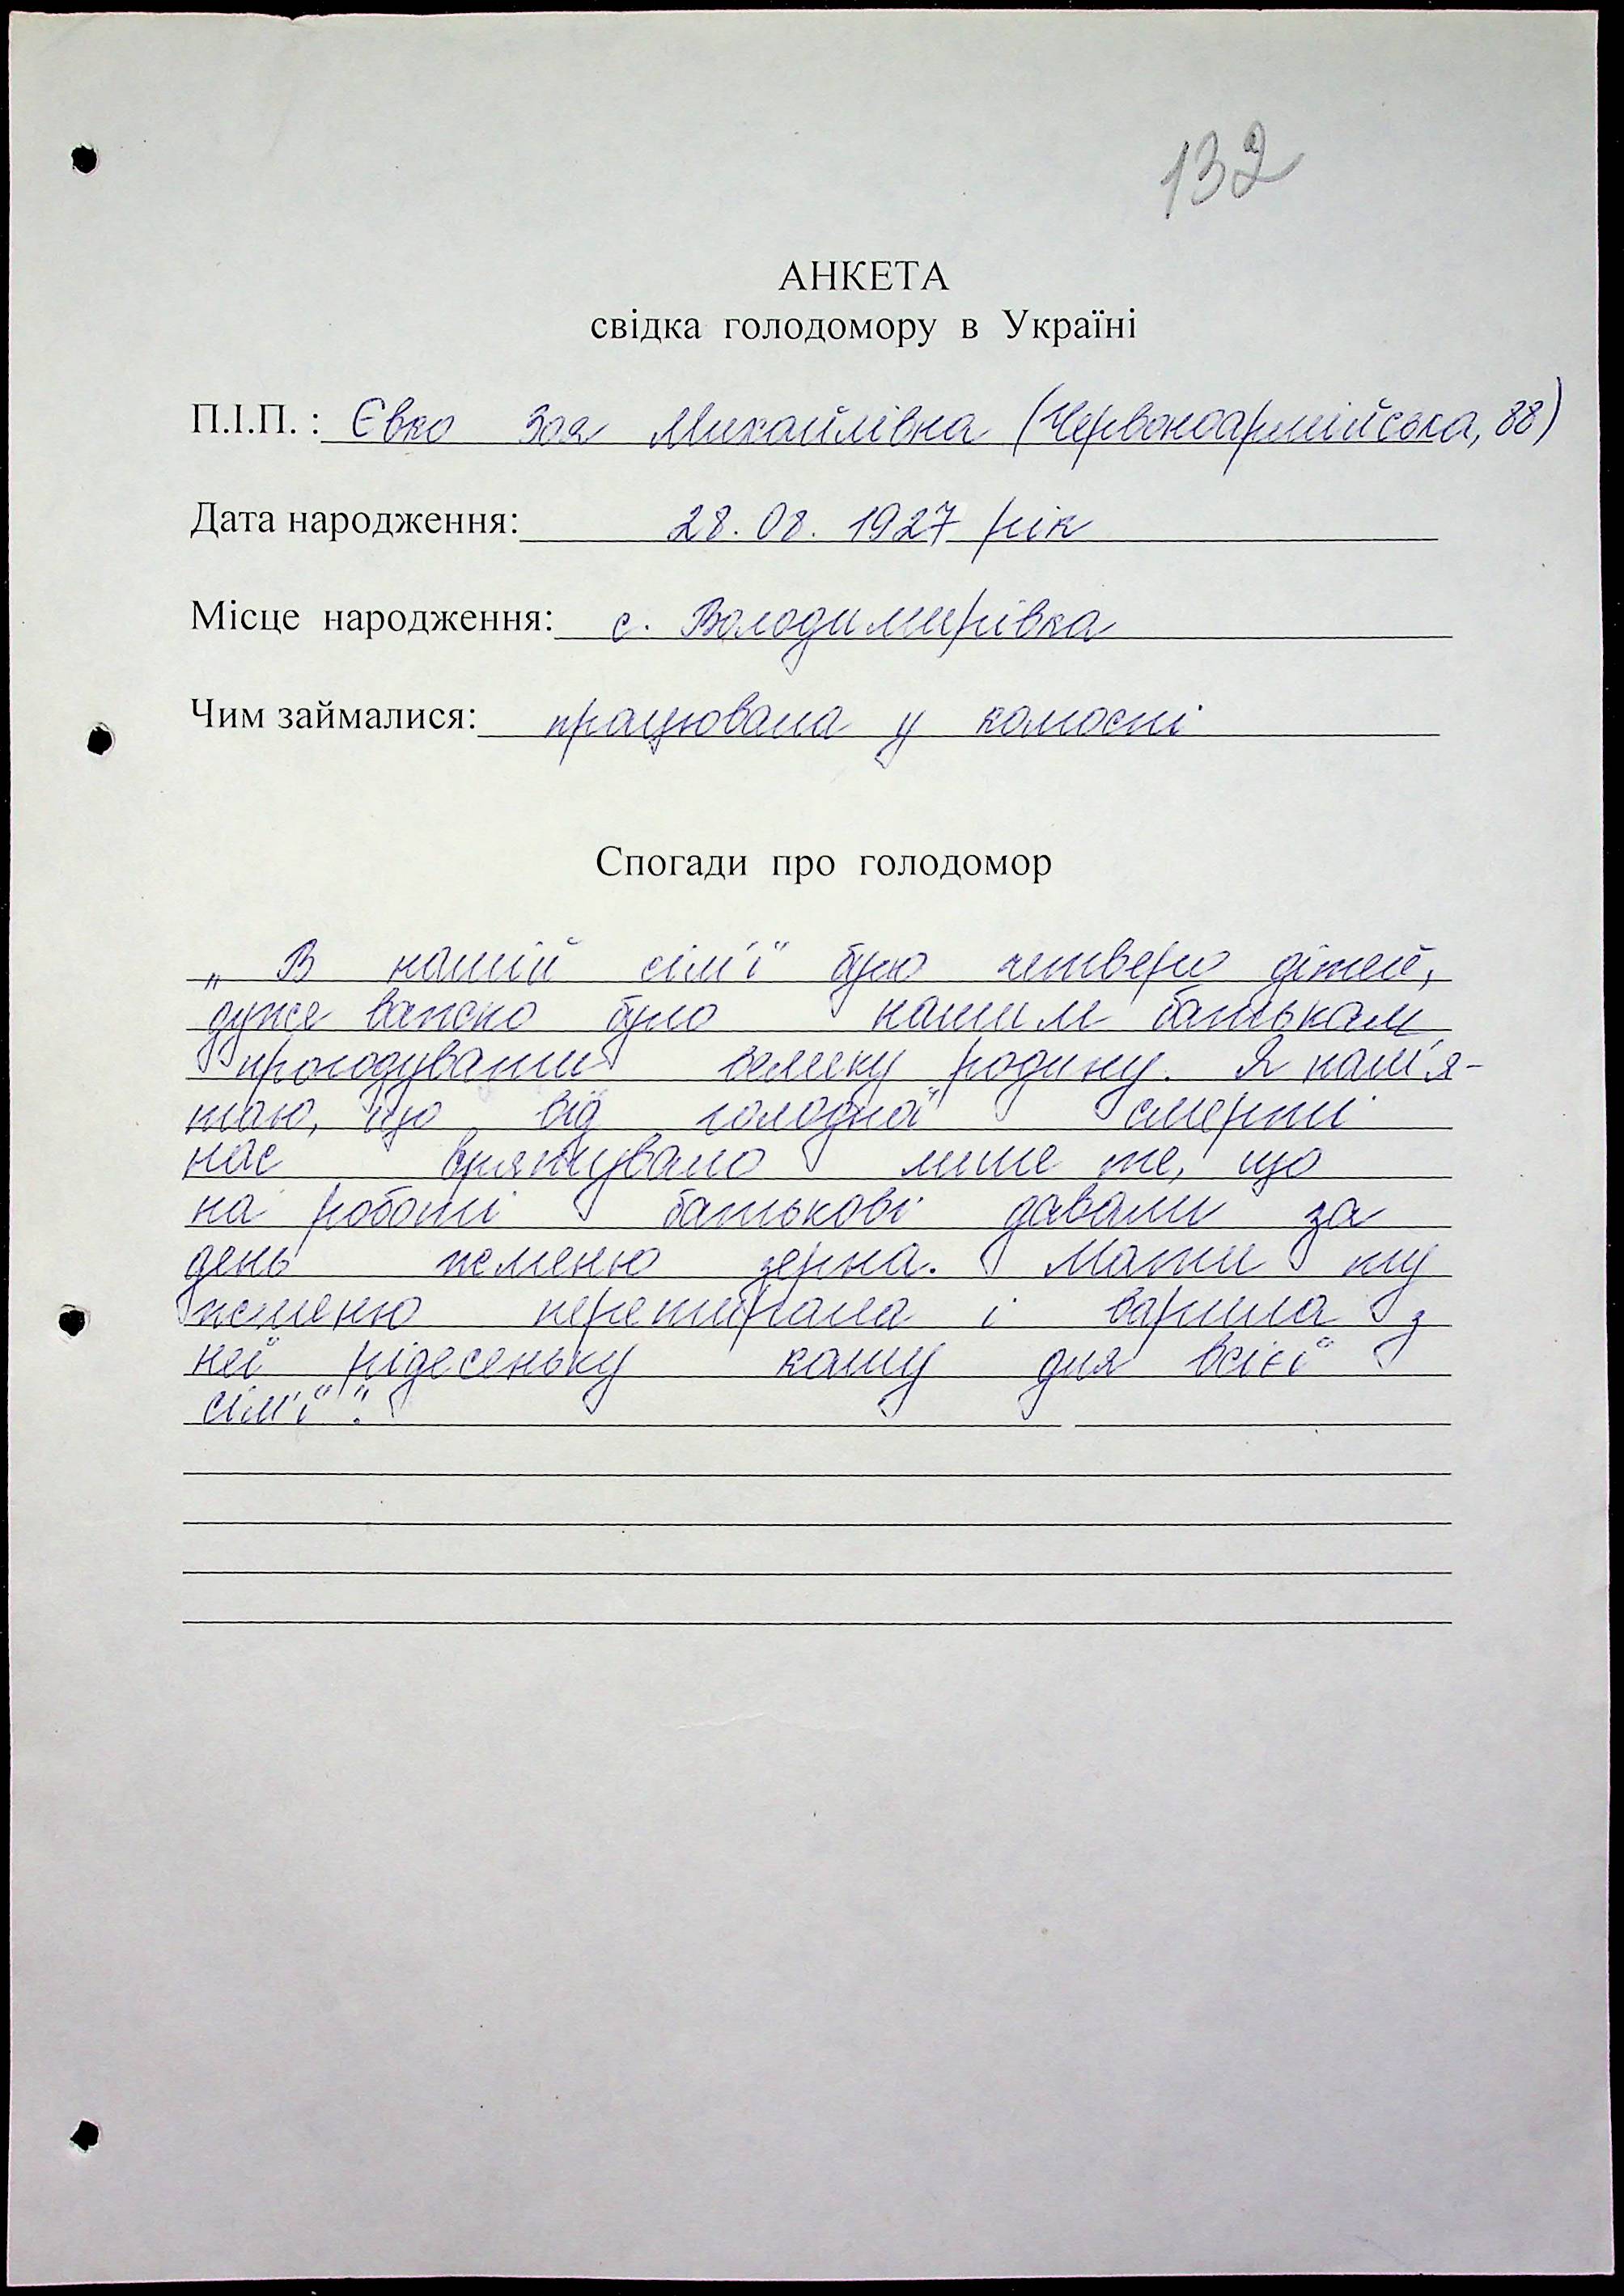 132
АНКЕТА
свідка голодомору в Україні
П.І.П. : Євко Зоя Михайлівна (Червоноармійська, 88)
Дата народження: 28.08.1927 рік
Місце народження: с. Володимирівка
Чим займалися: працювала у колгоспі
Спогади про голодомор
„В нашій сім'ї було четверо дітей,
дуже важко було нашим батькам
прогодувати велику родину. Я пам'я-
таю, що від голодної смерті
нас врятувало лише те, що
на роботі батькові давали за
день жменю зерна. Мати ту
жменю перетирала і варила з
неї рідесеньку кашу для всієї
сім'ї".